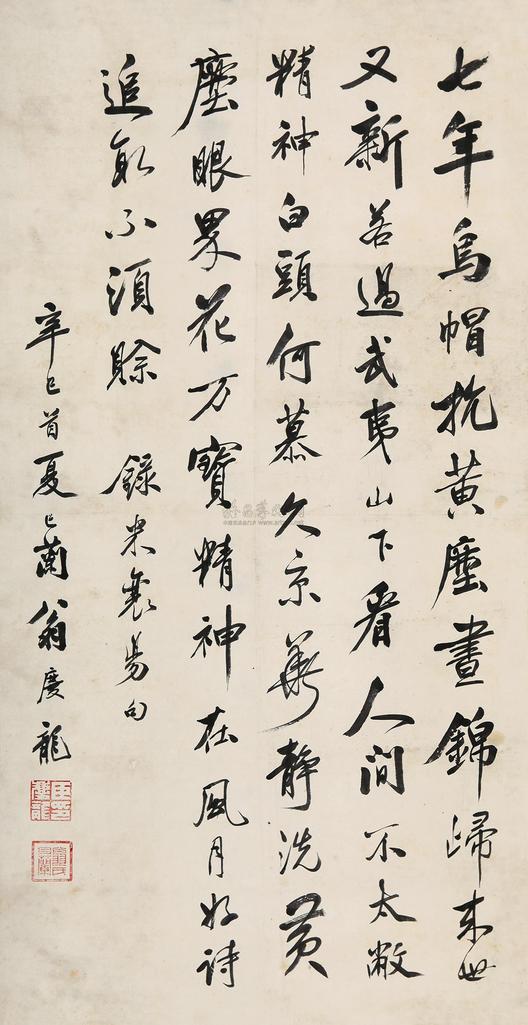 七年烏帽抗黃塵晝錦歸來世
又新若過武夷山下看人間不太敝
精神白頭何慕久京華靜洗黃
塵眼界花万寶精神在風月好詩
追氣不須賒 錄米襄陽句
辛巳首夏巳蘭翁慶龍